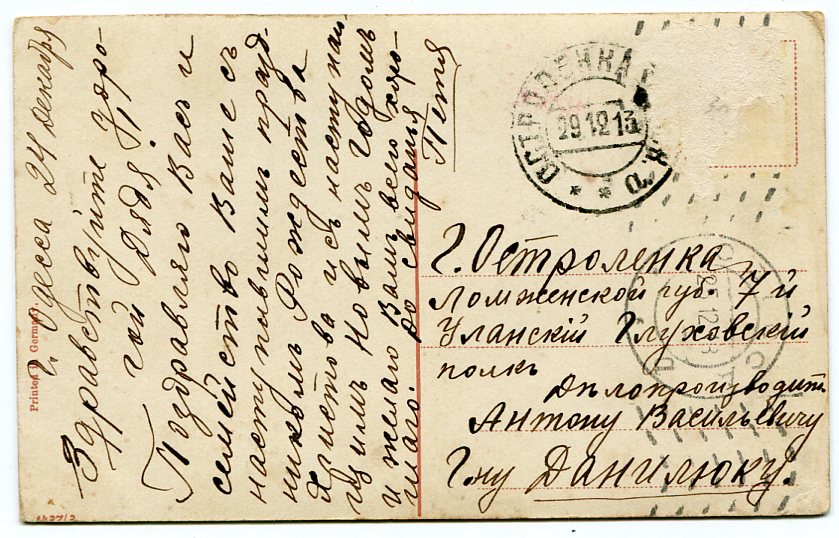 г. Одесса 24 декабря
Здравствуйте доро-
гой Дядя!
Поздравляю Васъ и
семейство Ваше съ
наступившимъ празд-
никомъ Рождества
Христова и съ наступаю-
щимъ Новымъ годомъ
и желаю Вамъ всего хоро-
шаго. До свиданья
Петя
Printed in Germany
ОСТРОЛЕНКА
29 12 13
25 12 13
Г. Остроленка
Ломженской губ. 7й
Уланскій Глуховскій
полкъ
Дѣлопроизводит
Антону Васильевичу
Г-ну Данилюку.